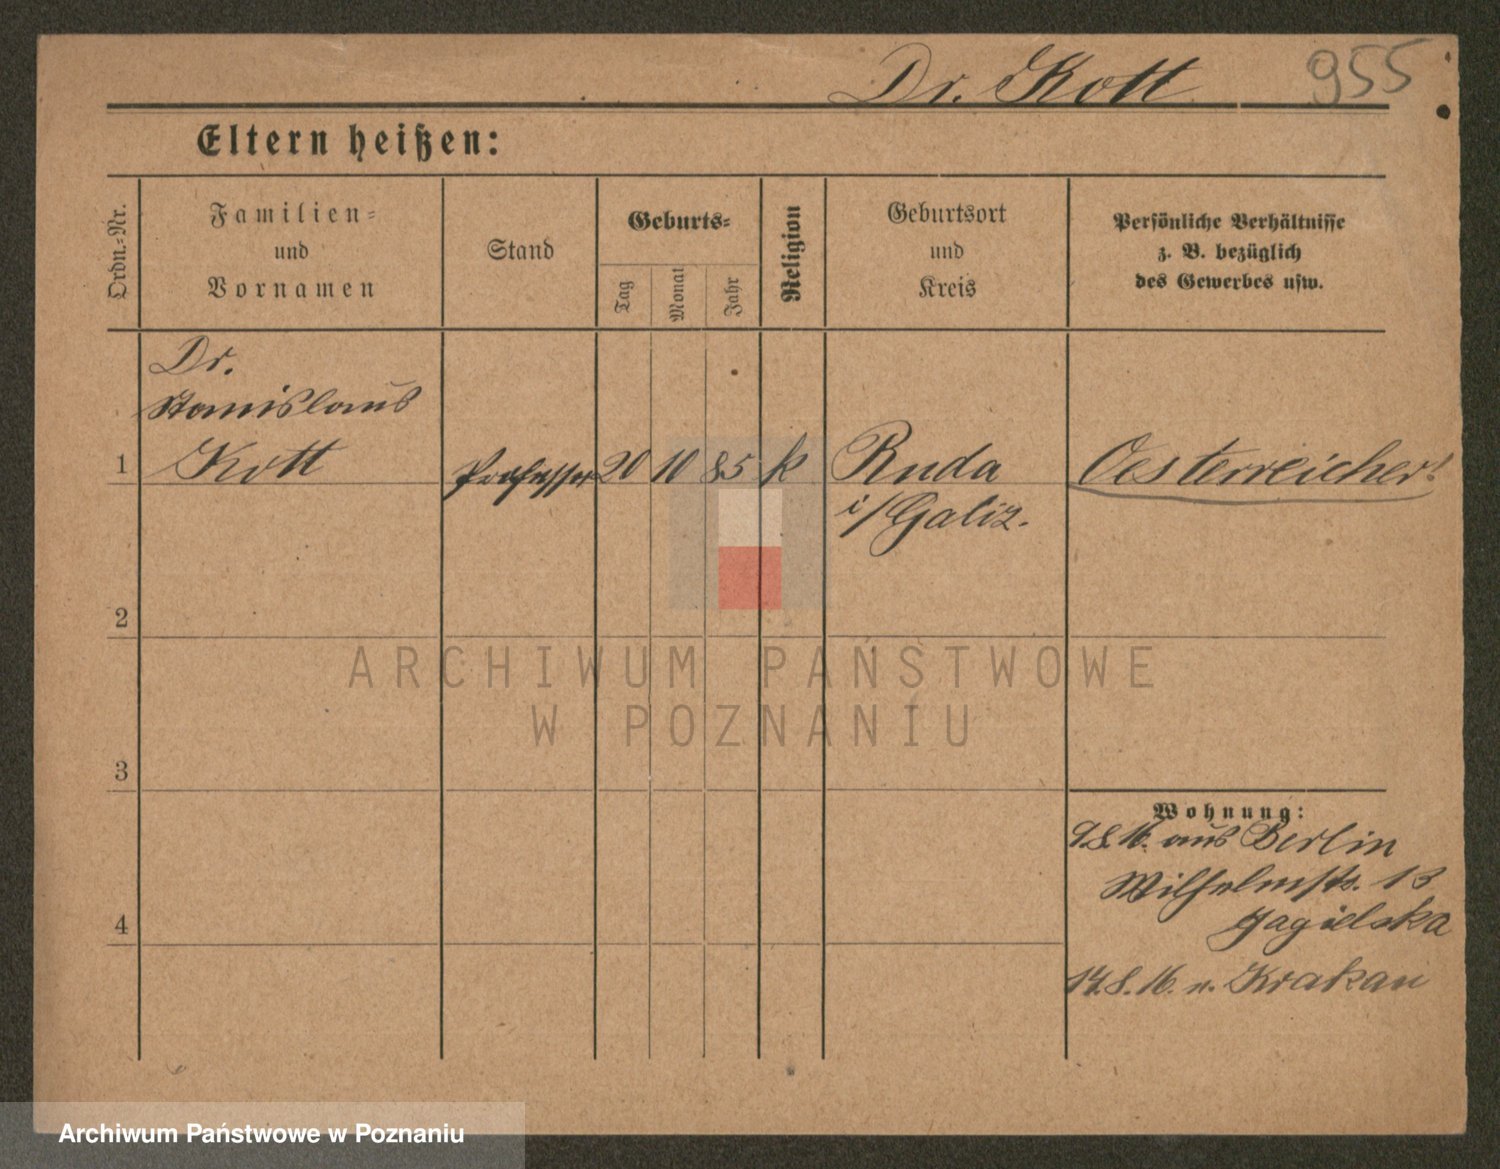 Dr. Kott 955
Eltern heißen:
Ordn.-Nr.
Familien-
und
Vornamen
Stand
Geburts-
Tag
Monat
Jahr
Religion
Geburtsort
und
Kreis
Persönliche Verhältnisse
z. B. bezüglich
des Gewerbes usw.
Dr.
Stanislaus
1 Kott Professor 20 10 85 k Ruda Oesterreicher!
i/Galiz.
2
3
4
Wohnung:
9.8.16. aus Berlin
Wilhelmstr. 13
Jagielska
14.8.16. n. Krakau
ARCHIWUM PAŃSTWOWE
W POZNANIU
Archiwum Państwowe w Poznaniu